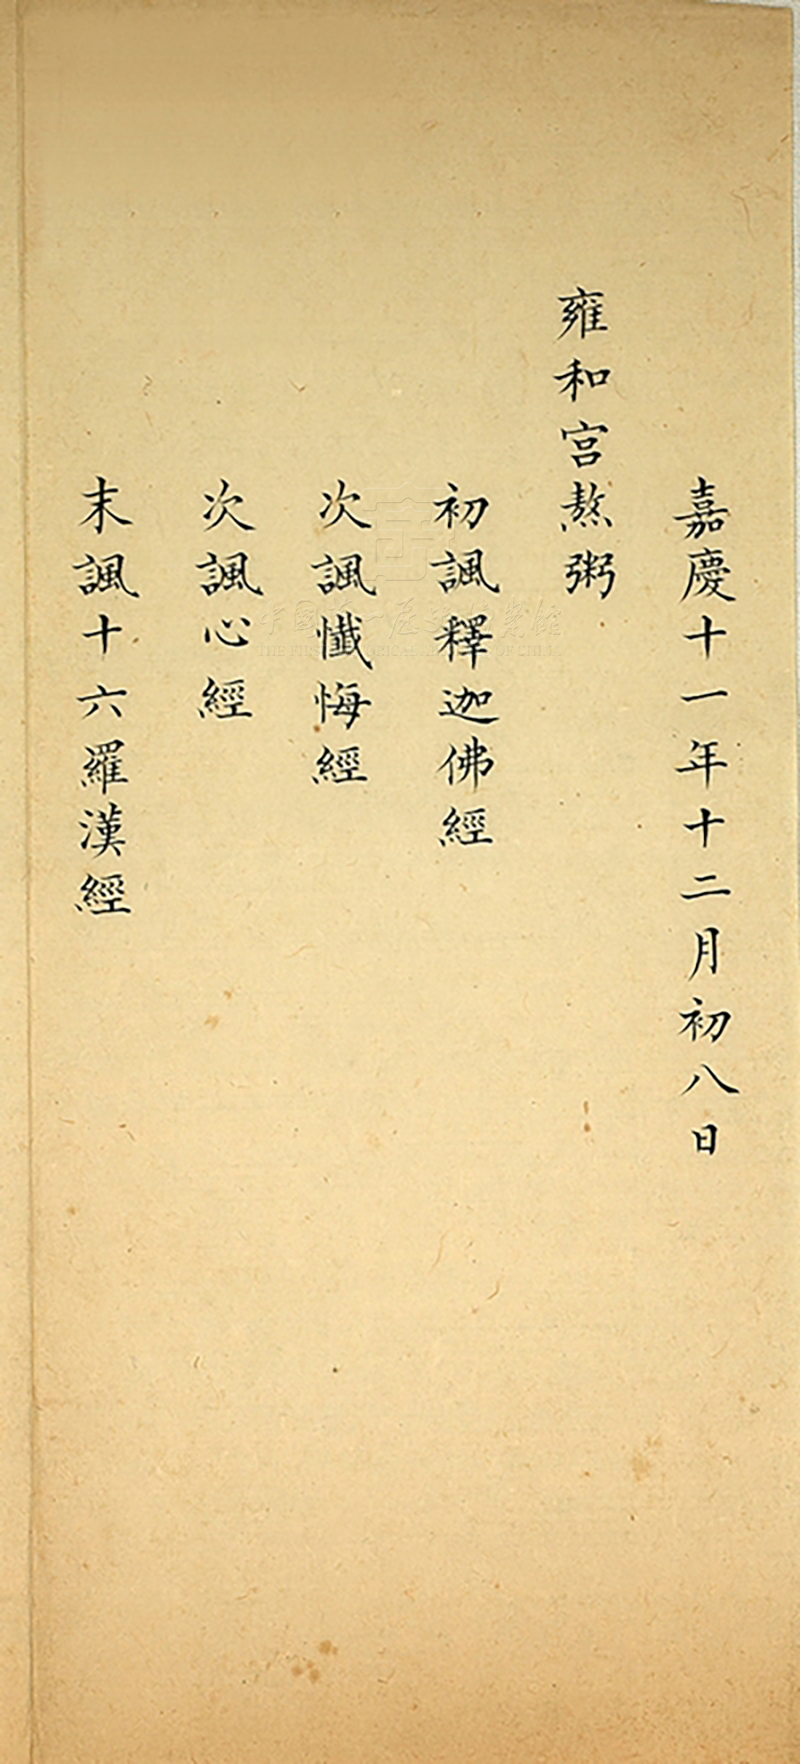 嘉慶十一年十二月初八日
雍和宮熬粥
初諷釋迦佛經
次諷懺悔經
次諷心經
末諷十六羅漢經